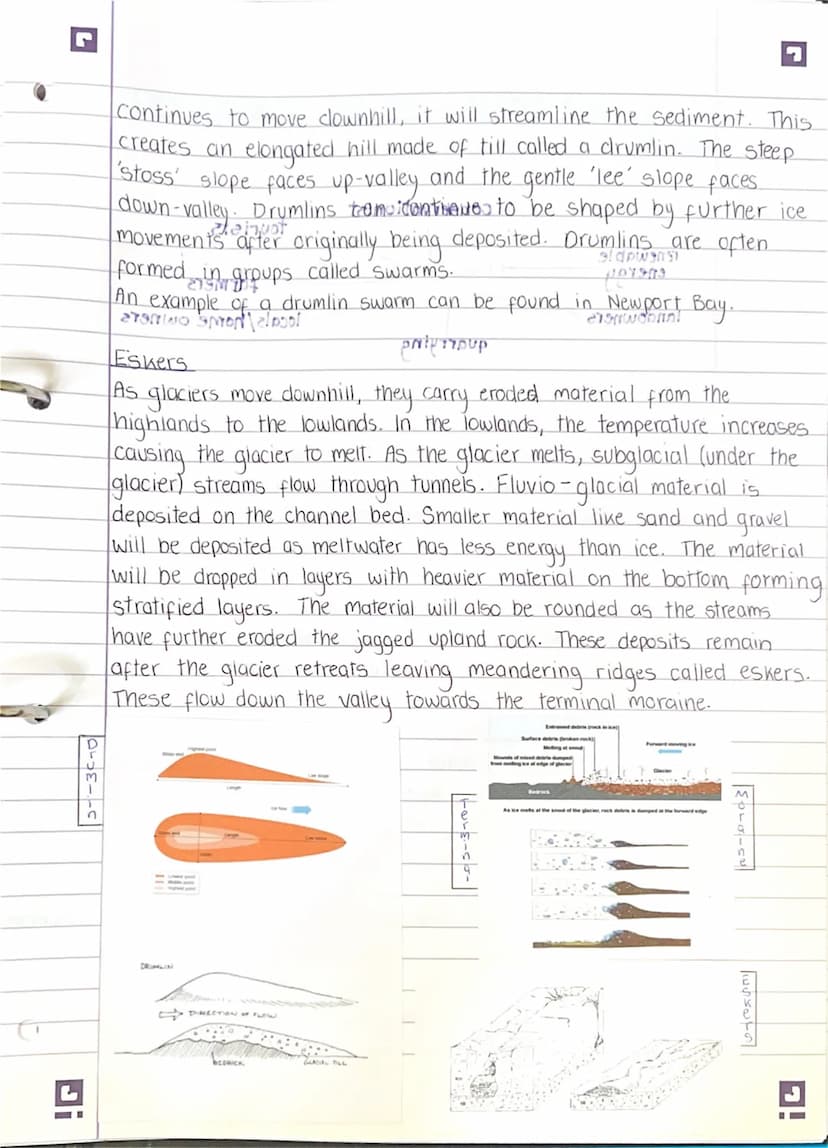 continues to move downhill, it will streamline the sediment. This
creates an elongated hill made of till called a drumlin. The steep
'stoss' slope faces up-valley and the gentle 'lee' slope faces
down-valley. Drumlins to be shaped by further ice
movements after originally being deposited. Drumlins are often
formed in groups called swarms.
An example of a drumlin swarm can be found in Newport Bay.
Eskers
As glaciers move downhill, they carry eroded material from the
highlands to the lowlands. In the lowlands, the temperature increases
causing the glacier to melt. As the glacier melts, subglacial (under the
glacier) streams flow through tunnels. Fluvio-glacial material is
deposited on the channel bed. Smaller material like sand and gravel
will be deposited as meltwater has less energy than ice. The material
will be dropped in layers with heavier material on the bottom forming
stratified layers. The material will also be rounded as the streams
have further eroded the jagged upland rock. These deposits remain
after the glacier retreats leaving meandering ridges called eskers.
These flow down the valley towards the terminal moraine.
Drumlin
Highest point
Stoss end
Lee slope
Length
Ice flow
Stoss end
Length
Lee slope
Width
Lowest point
Middle point
Highest point
DRUMLIN
DIRECTION OF FLOW
BEDROCK
GLACIAL TILL
Terminal
Entrained debris (rock in ice)
Surface debris (broken rock)
Melting at snout
Forward moving ice
Mounds of mixed debris dumped
from melting ice at edge of glacier
Glacier
Bedrock
As ice melts at the snout of the glacier, rock debris is dumped at the forward edge
Moraine
Eskers